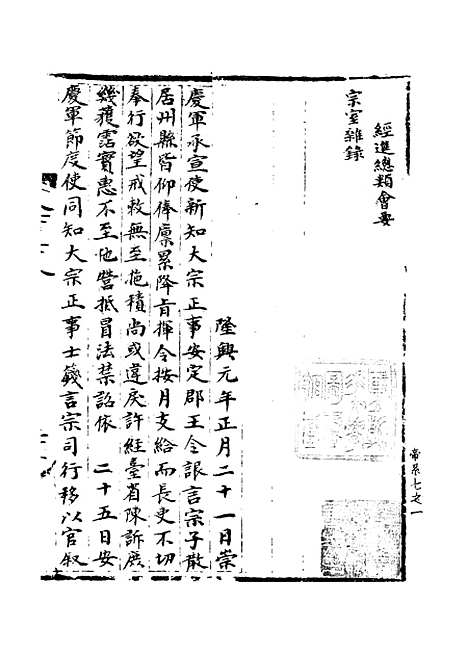 經進總類會要
宗室雜錄
隆興元年正月二十一日崇
慶軍承宣使新知大宗正事安定郡王令詪言宗子散
居州縣皆仰俸廩累降旨揮令按月支給而長吏不切
奉行欲望戒敕無至拖積尚或違戾許經臺省陳訴庶
幾獲霑實惠不至他營抵冒法禁詔依　二十五日安
慶軍節度使同知大宗正事士籛言宗司行移以官敘
帝系七之一